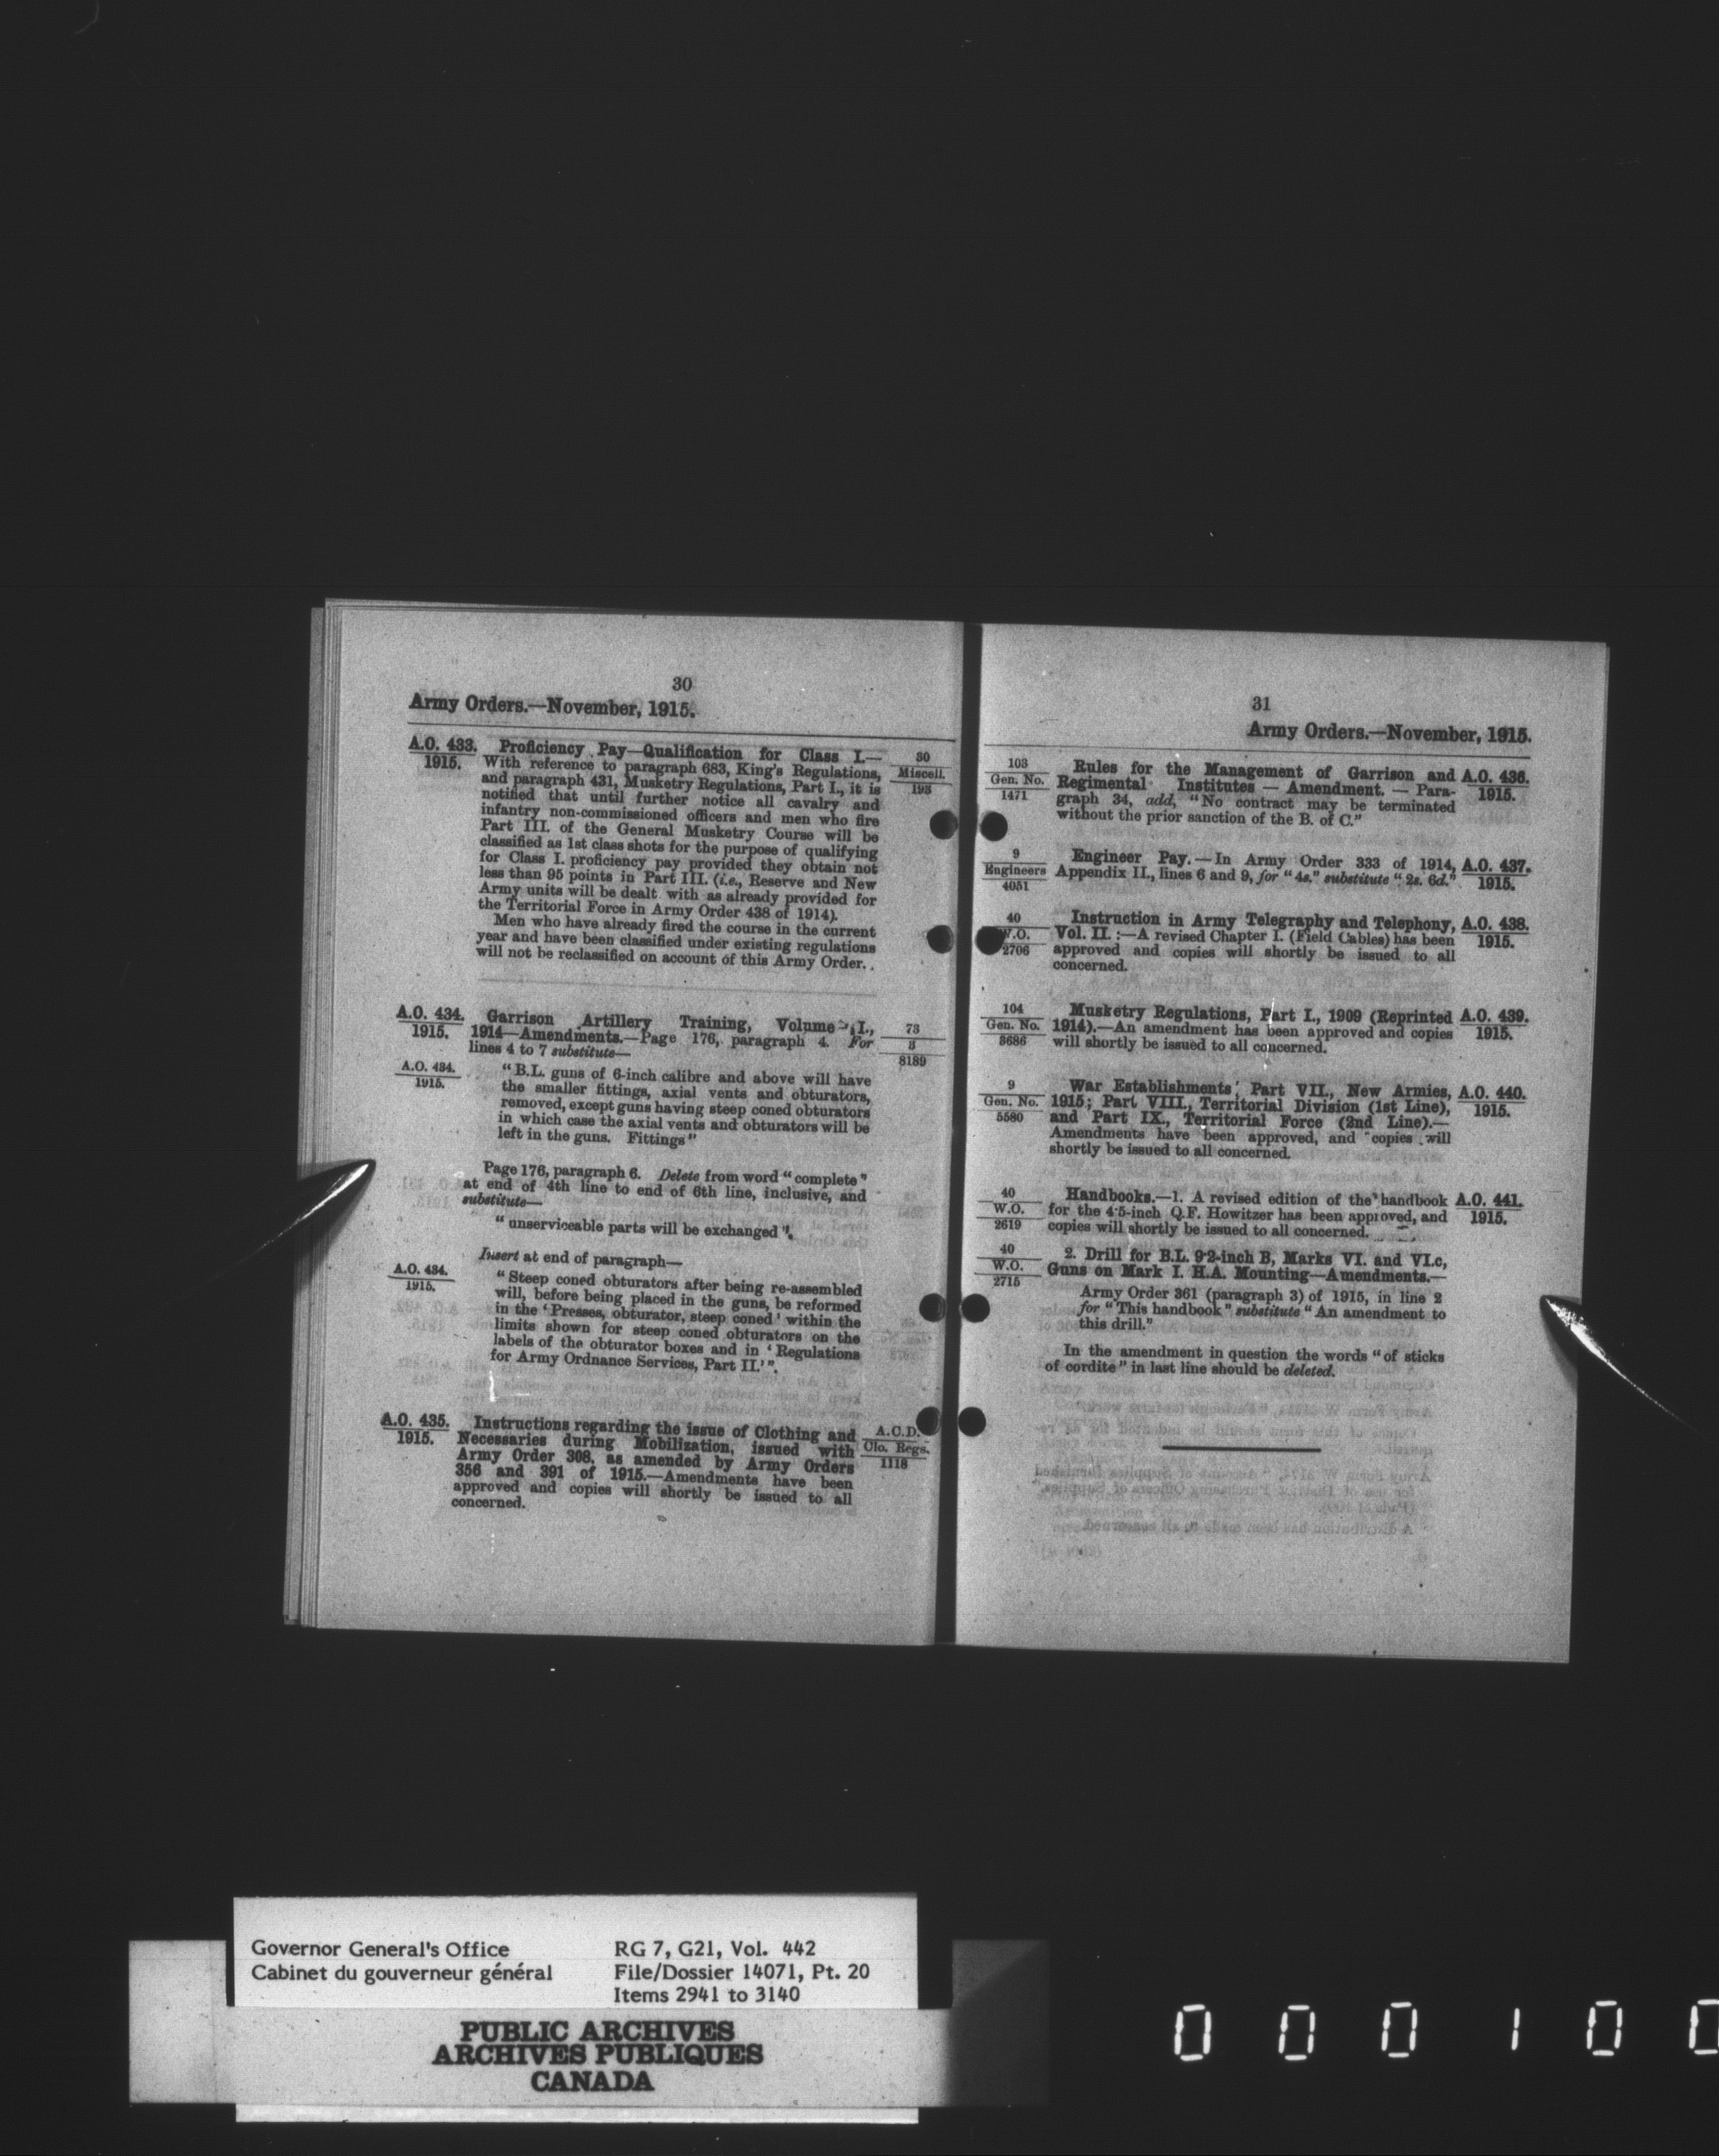 30
Army Orders.—November, 1915.
A.O. 433.
1915.
Proficiency Pay—Qualification for Class I.—
With reference to paragraph 683, King's Regulations,
and paragraph 431, Musketry Regulations, Part I., it is
notified that until further notice all cavalry and
infantry non-commissioned officers and men who fire
Part III. of the General Musketry Course will be
classified as 1st class shots for the purpose of qualifying
for Class I. proficiency pay provided they obtain not
less than 95 points in Part III. (i.e., Reserve and New
Army units will be dealt with as already provided for
the Territorial Force in Army Order 438 of 1914).
Men who have already fired the course in the current
year and have been classified under existing regulations
will not be reclassified on account of this Army Order.
30
Miscell.
193
A.O. 434.
1915.
Garrison Artillery Training, Volume I.,
1914—Amendments.—Page 176, paragraph 4. For
lines 4 to 7 substitute—
73
3
8189
A.O. 434.
1915.
"B.L. guns of 6-inch calibre and above will have
the smaller fittings, axial vents and obturators,
removed, except guns having steep coned obturators
in which case the axial vents and obturators will be
left in the guns. Fittings"
Page 176, paragraph 6. Delete from word "complete"
at end of 4th line to end of 6th line, inclusive, and
substitute—
"unserviceable parts will be exchanged".
Insert at end of paragraph—
A.O. 434.
1915.
"Steep coned obturators after being re-assembled
will, before being placed in the guns, be reformed
in the 'Presses, obturator, steep coned' within the
limits shown for steep coned obturators on the
labels of the obturator boxes and in 'Regulations
for Army Ordnance Services, Part II.'".
A.O. 435.
1915.
Instructions regarding the issue of Clothing and
Necessaries during Mobilization, issued with
Army Order 308, as amended by Army Orders
356 and 391 of 1915.—Amendments have been
approved and copies will shortly be issued to all
concerned.
A.C.D.
Clo. Regs.
1118
31
Army Orders.—November, 1915.
103
Gen. No.
1471
Rules for the Management of Garrison and
Regimental Institutes — Amendment. — Para-
graph 34, add, "No contract may be terminated
without the prior sanction of the B. of C."
A.O. 436.
1915.
9
Engineers
4051
Engineer Pay.—In Army Order 333 of 1914,
Appendix II., lines 6 and 9, for "4s." substitute "2s. 6d."
A.O. 437.
1915.
40
W.O.
2706
Instruction in Army Telegraphy and Telephony,
Vol. II.:—A revised Chapter I. (Field Cables) has been
approved and copies will shortly be issued to all
concerned.
A.O. 438.
1915.
104
Gen. No.
3686
Musketry Regulations, Part I., 1909 (Reprinted
1914).—An amendment has been approved and copies
will shortly be issued to all concerned.
A.O. 439.
1915.
9
Gen. No.
5580
War Establishments, Part VII., New Armies,
1915; Part VIII., Territorial Division (1st Line),
and Part IX., Territorial Force (2nd Line).—
Amendments have been approved, and copies will
shortly be issued to all concerned.
A.O. 440.
1915.
40
W.O.
2619
Handbooks.—1. A revised edition of the handbook
for the 4·5-inch Q.F. Howitzer has been approved, and
copies will shortly be issued to all concerned.
A.O. 441.
1915.
40
W.O.
2715
2. Drill for B.L. 9·2-inch B, Marks VI. and VI.c,
Guns on Mark I. H.A. Mounting—Amendments.—
Army Order 361 (paragraph 3) of 1915, in line 2
for "This handbook" substitute "An amendment to
this drill."
In the amendment in question the words "of sticks
of cordite" in last line should be deleted.
Governor General's Office
Cabinet du gouverneur général
RG 7, G21, Vol. 442
File/Dossier 14071, Pt. 20
Items 2941 to 3140
PUBLIC ARCHIVES
ARCHIVES PUBLIQUES
CANADA
0 0 0 1 0